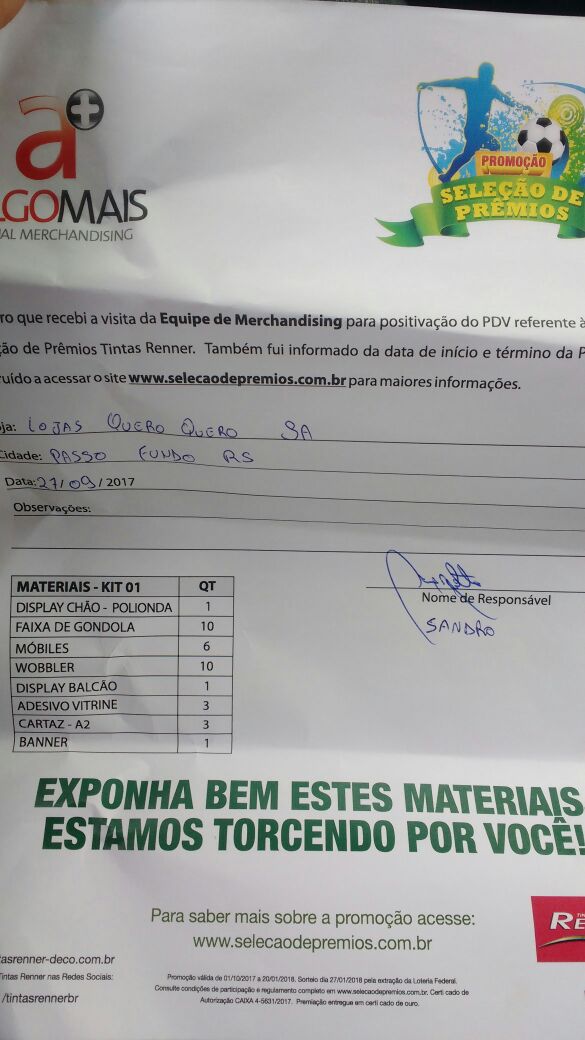 a+
LGOMAIS
AL MERCHANDISING
PROMOÇÃO
SELEÇÃO DE
PRÊMIOS
ro que recebi a visita da Equipe de Merchandising para positivação do PDV referente à
ão de Prêmios Tintas Renner. Também fui informado da data de início e término da P
ruído a acessar o site www.selecaodepremios.com.br para maiores informações.
ja: LOJAS QUERO QUERO SA
Cidade: PASSO FUNDO RS
Data: 27/09/2017
Observações:
Nome de Responsável
SANDRO
MATERIAIS - KIT 01 QT
DISPLAY CHÃO - POLIONDA 1
FAIXA DE GONDOLA 10
MÓBILES 6
WOBBLER 10
DISPLAY BALCÃO 1
ADESIVO VITRINE 3
CARTAZ - A2 3
BANNER 1
EXPONHA BEM ESTES MATERIAIS
ESTAMOS TORCENDO POR VOCÊ!
Para saber mais sobre a promoção acesse:
www.selecaodepremios.com.br
RE
tasrenner-deco.com.br
Tintas Renner nas Redes Sociais:
/tintasrennerbr
Promoção válida de 01/10/2017 a 20/01/2018. Sorteio dia 27/01/2018 pela extração da Loteria Federal.
Consulte condições de participação e regulamento completo em www.selecaodepremios.com.br. Certi cado de
Autorização CAIXA 4-5631/2017. Premiação entregue em certi cado de ouro.